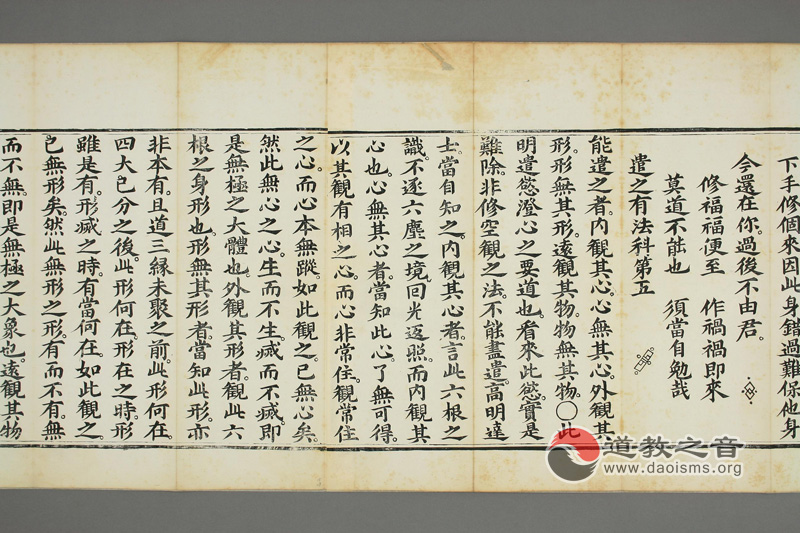 下手修個來因此身錯過難保他身
今還在你過後不由君。
修福福便至　作禍禍即來
莫道不能也　須當自勉哉
遣之有法科第五
能遣之者。內觀其心。心無其心。外觀其
形。形無其形。遠觀其物。物無其物。○此
明遣慾澄心之要道也。看來此慾實是
難除。非修空觀之法不能盡遣。高明達
士。當自知之。內觀其心者。言此六根之
識。不逐六塵之境。回光返照。而內觀其
心也。心無其心者。當知此心了無可得。
以其觀有相之心。而心非常住。觀常住
之心。而心本無蹤。如此觀之。已無心矣。
然此無心之心。生而不生。滅而不滅。即
是無極之大體也。外觀其形者。觀此六
根之身形也。形無其形者。當知此形。亦
非本有。且道三緣未聚之前。此形何在。
四大已分之後。此形何在。形在之時。形
雖是有。形滅之時。有當何在。如此觀之。
已無形矣。然此無形之形。有而不有。無
而不無。即是無極之大象也。遠觀其物
道教之音
www.daoisms.org